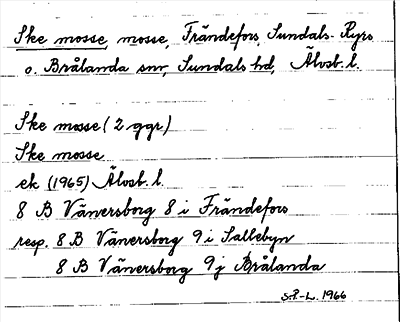 Ske mosse, mosse, Frändefors, Sundals-Ryrs
o. Brålanda snr, Sundals hd, Älvsb. l.
Ske mosse (2 ggr)
Ske mosse
ek (1965) Älvsb. l.
8 B Vänersborg 8 i Frändefors
resp. 8 B Vänersborg 9 i Sallebyn
8 B Vänersborg 9 j Brålanda
S.P.-L. 1966